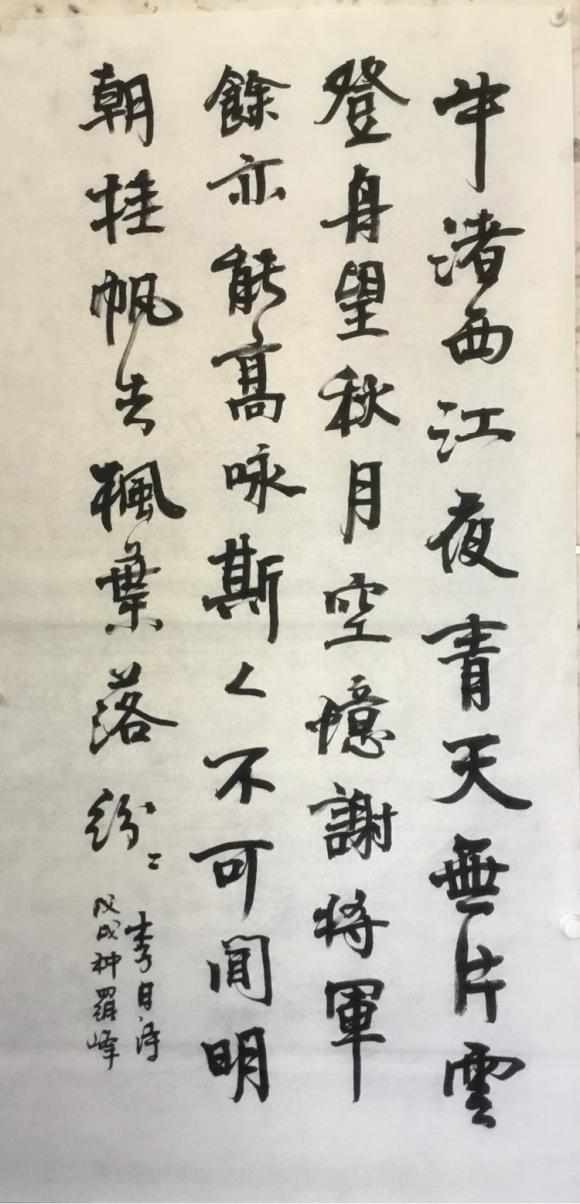 牛渚西江夜青天無片雲
登身望秋月空憶謝將軍
餘亦能高咏斯人不可聞明
朝挂帆去楓葉落紛〻
李白诗
戊戌 羅峰